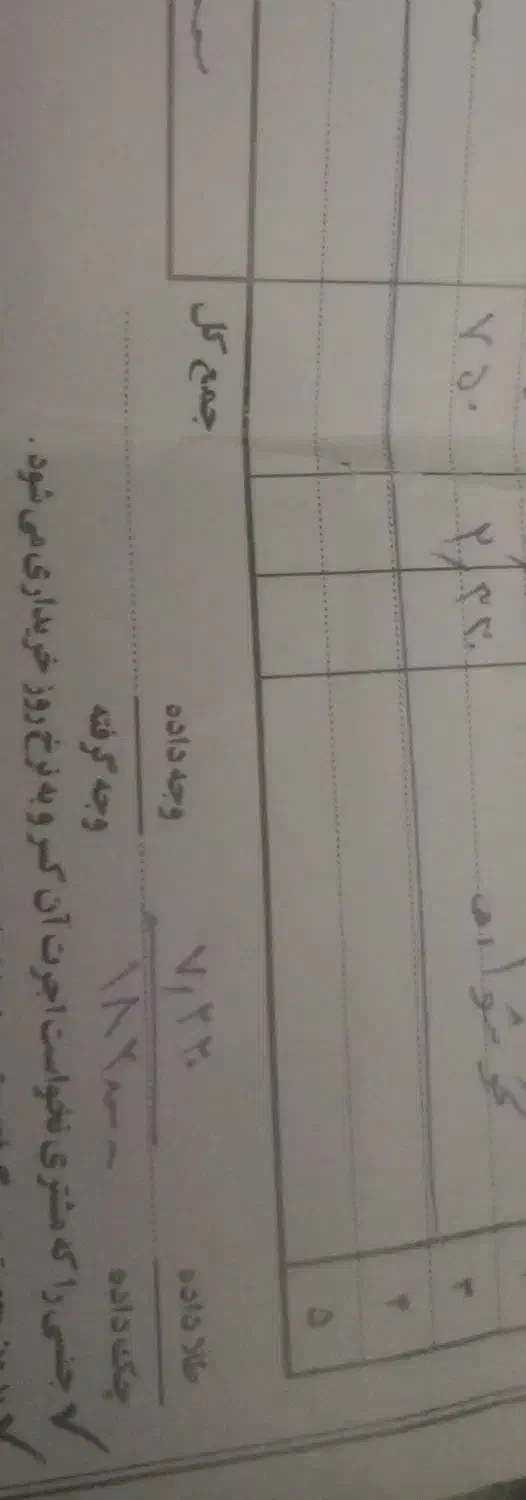 ۳ گوشواره ۲٫۲۲۰ ۷۵۰
۴
۵
طلا داده ۷٫۲۲۰ وجه داده جمع کل
چک داده ۱۸۲ وجه گرفته
✓ جنسی را که مشتری نخواست اجرت آن کسر و به نرخ روز خریداری می شود.